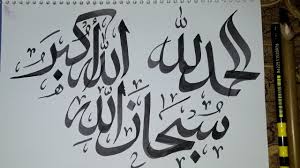 الحمد لله الله أكبر
سبحان الله